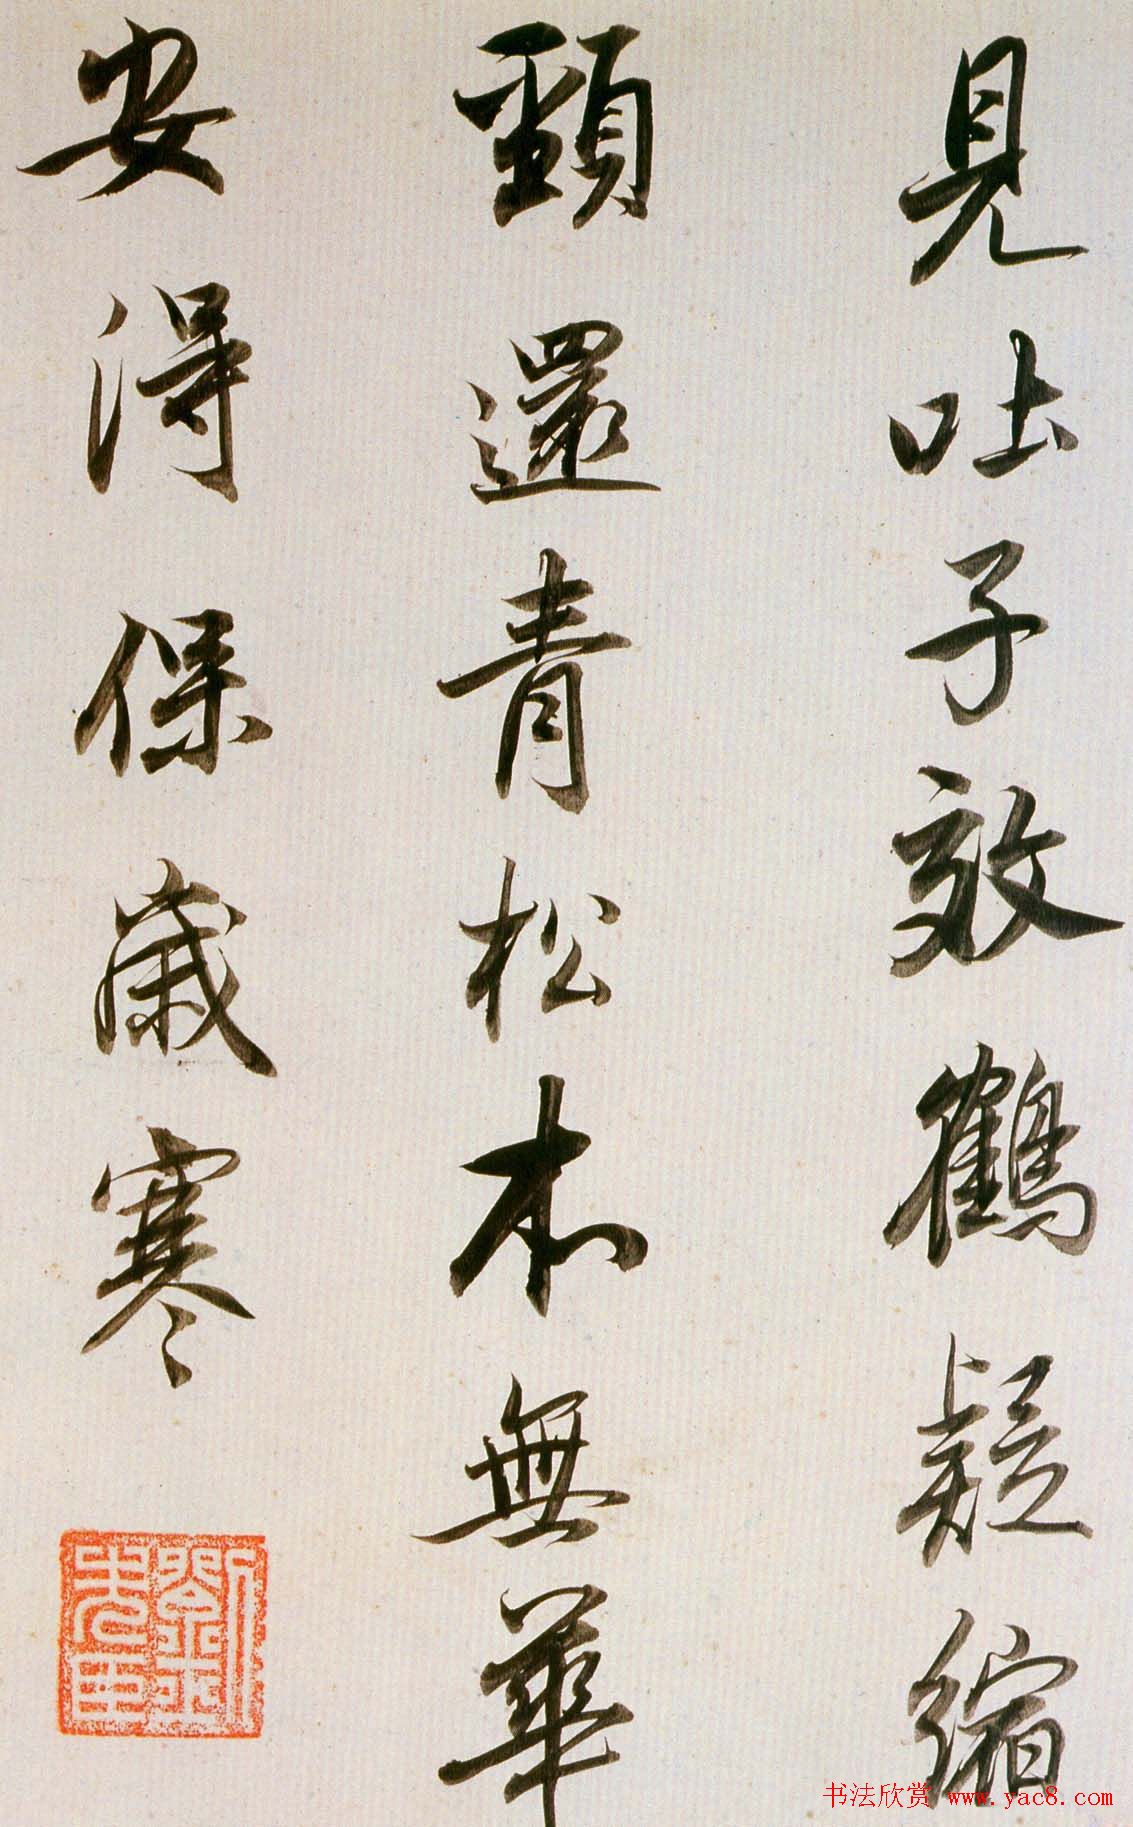 見吐子效鶴疑縮
頸還青松本無華
安得保歲寒
书法欣赏 www.yac8.com